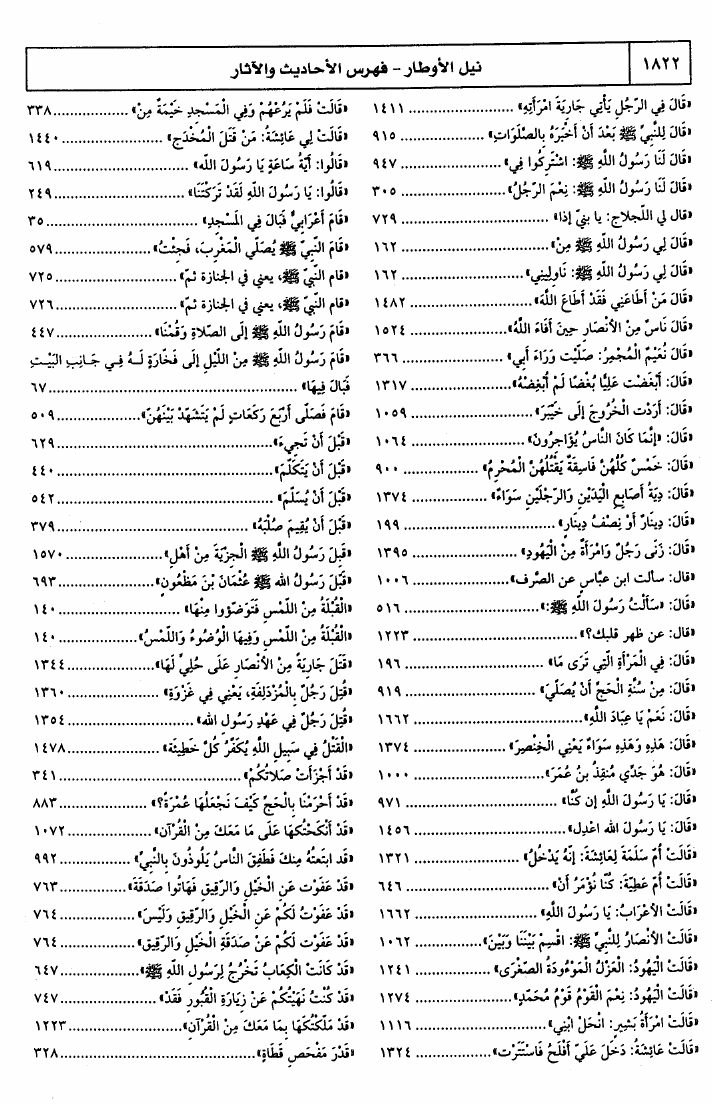 ١٨٢٢
نيل الأوطار - فهرس الأحاديث والآثار
«قَالَ فِي الرَّجُلِ يَأْتِي جَارِيَةَ امْرَأَتِهِ» ........ ١٤١١
«قَالَ لِلنَّبِيِّ ﷺ بَعْدَ أَنْ أَخْبَرَهُ بِالصَّلَوَاتِ» ........ ٩١٥
«قَالَ لَنَا رَسُولُ اللَّهِ ﷺ: اشْتَرِكُوا فِي» ........ ٩٤٧
«قَالَ لَنَا رَسُولُ اللَّهِ ﷺ: نِعْمَ الرَّجُلُ» ........ ٣٠٥
«قال لي اللجلاج: يا بنيّ إذا» ........ ٧٢٩
«قَالَ لِي رَسُولُ اللَّهِ ﷺ مِنْ» ........ ١٦٢
«قَالَ لِي رَسُولُ اللَّهِ ﷺ: نَاوِلِينِي» ........ ١٦٢
«قَالَ مَنْ أَطَاعَنِي فَقَدْ أَطَاعَ اللَّهَ» ........ ١٤٨٢
«قَالَ نَاسٌ مِنَ الْأَنْصَارِ حِينَ أَفَاءَ اللَّهُ» ........ ١٥٢٤
«قَالَ نُعَيْمُ الْمُجْمِرُ: صَلَّيْت وَرَاءَ أَبِي» ........ ٣٦٦
«قَالَ: أَبْغَضْت عَلِيًّا بُغْضًا لَمْ أُبْغِضْهُ» ........ ١٣١٧
«قَالَ: أَرَدْت الْخُرُوجَ إلَى خَيْبَرَ» ........ ١٠٥٩
«قَالَ: «إنَّمَا كَانَ النَّاسُ يُؤَاجِرُونَ» ........ ١٠٦٤
«قَالَ: خَمْسٌ كُلُّهُنَّ فَاسِقَةٌ يَقْتُلُهُنَّ الْمُحْرِمُ» ........ ٩٠٠
«قَالَ: دِيَةُ أَصَابِعِ الْيَدَيْنِ وَالرِّجْلَيْنِ سَوَاءٌ» ........ ١٣٧٤
«قَالَ: دِينَارٌ أَوْ نِصْفُ دِينَارٍ» ........ ١٩٩
«قَالَ: زَنَى رَجُلٌ وَامْرَأَةٌ مِنَ الْيَهُودِ» ........ ١٣٩٥
«قال: سألت ابن عبّاس عن الصّرف» ........ ١٠٠٦
«قَالَ: «سَأَلْتُ رَسُولَ اللَّهِ ﷺ:» ........ ٥١٦
«قال: عن ظهر قلبك؟» ........ ١٢٢٣
«قَالَ: فِي الْمَرْأَةِ الَّتِي تَرَى مَا» ........ ١٩٦
«قَالَ: مِنْ سُنَّةِ الْحَجِّ أَنْ يُصَلِّيَ» ........ ٩١٩
«قَالَ: نَعَمْ يَا عِبَادَ اللَّهِ» ........ ١٦٦٢
«قَالَ: هَذِهِ وَهَذِهِ سَوَاءٌ يَعْنِي الْخِنْصِرَ» ........ ١٣٧٤
«قَالَ: هُوَ جَدِّي مُنْقِذُ بنُ عُمَرَ» ........ ١٠٠٠
«قَالَ: يَا رَسُولَ اللَّهِ إن كُنَّا» ........ ٩٧١
«قَالَ: يَا رَسُولَ الله اعْدِل» ........ ١٤٥٦
«قَالَتْ أُمِّ سَلَمَةَ لِعَائِشَةَ: إنَّهُ يَدْخُلُ» ........ ١٣٢١
«قَالَتْ أُم عَطِيَّةَ: كُنَّا نُؤْمَرُ أَنْ» ........ ٦٤٦
«قَالَتْ الْأَعْرَابُ: يَا رَسُولَ اللَّهِ» ........ ١٦٦٢
«قَالَتْ الْأَنْصَارُ لِلنَّبِيِّ ﷺ: اقْسِمْ بَيْنَنَا وَبَيْنَ» ........ ١٠٦٢
«قَالَتْ الْيَهُودُ: الْعَزْلُ الْمَوْءُودَةُ الصُّغْرَى» ........ ١٢٤١
«قَالَتْ الْيَهُودُ: نِعْمَ الْقَوْمُ قَوْمُ مُحَمَّدٍ» ........ ١٢٧٤
«قَالَتْ امْرَأَةُ بَشِيرٍ: انْحَلْ ابْنِي» ........ ١١١٦
«قَالَتْ عَائِشَةُ: دَخَلَ عَلَيَّ أَفْلَحُ فَاسْتَتَرْت» ........ ١٣٢٤
«قَالَتْ فَلَمْ يَرُعْهُمْ وَفِي الْمَسْجِدِ خَيْمَةٌ مِنْ» ........ ٣٣٨
«قَالَتْ لِي عَائِشَةُ: مَنْ قَتَلَ الْمُخْدَج» ........ ١٤٤٠
«قَالُوا: أَيَّةُ سَاعَةٍ يَا رَسُولَ اللَّه» ........ ٦١٩
«قَالُوا: يَا رَسُولَ اللَّهِ لَقَدْ تَرَكْتَنَا» ........ ٢٤٩
«قَامَ أَعْرَابِيٌّ فَبَالَ فِي الْمَسْجِدِ» ........ ٣٥
«قَامَ النَّبِيُّ ﷺ يُصَلِّي الْمَغْرِبَ، فَجِئْتُ» ........ ٥٧٩
«قام النّبيّ ﷺ، يعني في الجنازة ثمّ» ........ ٧٢٥
«قام النّبيّ ﷺ، يعني في الجنازة ثمّ» ........ ٧٢٦
«قَامَ رَسُولُ اللَّهِ ﷺ إلَى الصَّلَاةِ وَقُمْنَا» ........ ٤٤٧
«قَامَ رَسُولُ اللَّهِ ﷺ مِنْ اللَّيْلِ إلَى فَخَّارَةٍ لَهُ فِي جَانِبِ الْبَيْتِ
فَبَالَ فِيهَا» ........ ٦٧
«قَامَ فَصَلَّى أَرْبَعَ رَكَعَاتٍ لَمْ يَتَشَهَّدْ بَيْنَهُنَّ» ........ ٥٠٩
«قَبْلَ أَنْ تَجِيءَ» ........ ٦٢٩
«قَبْلَ أَنْ يَتَكَلَّمَ» ........ ٤٤٠
«قَبْلَ أَنْ يُسَلِّمَ» ........ ٥٤٢
«قَبْلَ أَنْ يُقِيمَ صُلْبَهُ» ........ ٣٧٩
«قَبِلَ رَسُولُ اللَّهِ ﷺ الْجِزْيَةَ مِنْ أَهْلِ» ........ ١٥٧٠
«قَبَّلَ رَسُولُ الله ﷺ عُثْمَانَ بْنَ مَظْعُونٍ» ........ ٦٩٣
«الْقُبْلَةُ مِنْ اللَّمْسِ فَتَوَضَّؤوا مِنْهَا» ........ ١٤٠
«الْقُبْلَةُ مِنْ اللَّمْسِ وَفِيهَا الْوُضُوءُ وَاللَّمْسُ» ........ ١٤٠
«قَتَلَ جَارِيَةً مِنَ الْأَنْصَارِ عَلَى حُلِيٍّ لَهَا» ........ ١٣٤٤
«قُتِلَ رَجُلٌ بِالْمُزْدَلِفَةِ، يَعْنِي فِي غَزْوَةِ» ........ ١٣٦٠
«قُتِلَ رَجُلٌ فِي عَهْدِ رَسُولِ الله» ........ ١٣٥٤
«الْقَتْلُ فِي سَبِيلِ اللَّهِ يُكَفِّرُ كُلَّ خَطِيئَة» ........ ١٤٧٨
«قَدْ أَجْزَأَتْ صَلَاتُكُمْ» ........ ٣٤١
«قَدْ أَحْرَمْنَا بِالْحَجِّ كَيْفَ نَجْعَلُهَا عُمْرَةً؟» ........ ٨٨٣
«قَدْ أَنْكَحْتُكهَا عَلَى مَا مَعَكَ مِنَ الْقُرْآنِ» ........ ١٠٧٢
«قَد ابتَعتُه مِنكَ فَطَفِقَ النَّاسُ يَلُوذُونَ بِالنَّبِيِّ» ........ ٩٩٢
«قَد عَفَوْت عَنِ الْخَيْلِ وَالرَّقِيقِ فَهَاتُوا صَدَقَةَ» ........ ٧٦٣
«قَدْ عَفَوْتُ لَكُمْ عَنِ الْخَيْلِ وَالرَّقِيقِ وَلَيْسَ» ........ ٧٦٤
«قَدْ عَفَوْت لَكُمْ عَنْ صَدَقَةِ الْخَيْلِ وَالرَّقِيقِ» ........ ٧٦٤
«قَدْ كَانَتْ الْكِعَابُ تَخْرُجُ لِرَسُولِ اللَّهِ ﷺ» ........ ٦٤٧
«قَدْ كُنْت نَهَيْتُكُمْ عَنْ زِيَارَةِ الْقُبُورِ فَقَدْ» ........ ٧٤٧
«قَدْ مَلَّكْتُكَهَا بِمَا مَعَكَ مِنَ الْقُرْآنِ» ........ ١٢٢٣
«قَدْرَ مَفْحَصِ قَطَاةٍ» ........ ٣٢٨